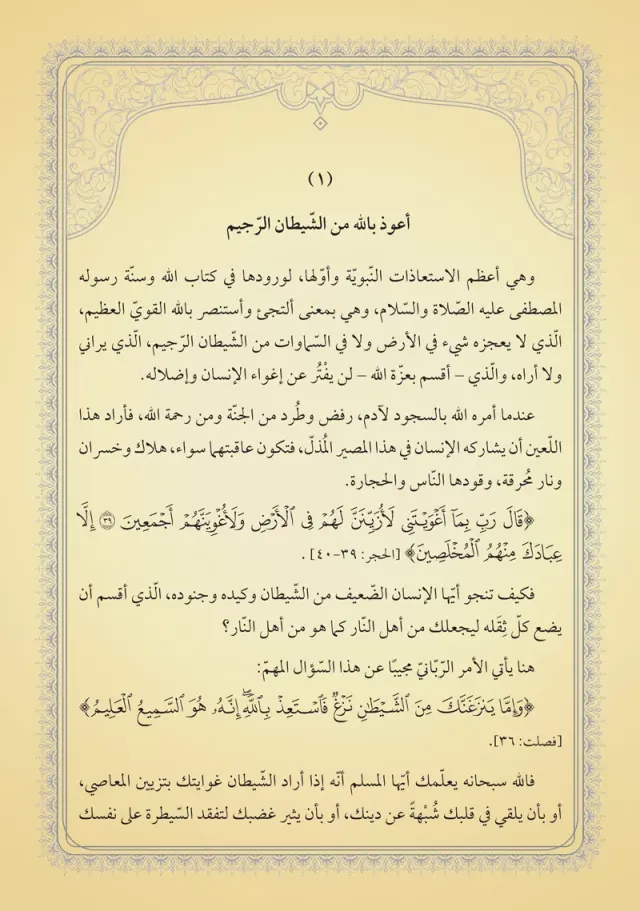 (١)
أعوذ بالله من الشّيطان الرّجيم
وهي أعظم الاستعاذات النّبويّة وأوّلها، لورودها في كتاب الله وسنّة رسوله
المصطفى عليه الصّلاة والسّلام، وهي بمعنى ألتجئ وأستنصر بالله القويّ العظيم،
الّذي لا يعجزه شيء في الأرض ولا في السّماوات من الشّيطان الرّجيم، الّذي يراني
ولا أراه، والّذي – أقسم بعزّة الله – لن يفْتُر عن إغواء الإنسان وإضلاله.
عندما أمره الله بالسجود لآدم، رفض وطُرد من الجنّة ومن رحمة الله، فأراد هذا
اللّعين أن يشاركه الإنسان في هذا المصير المُذلّ، فتكون عاقبتهما سواء، هلاك وخسران
ونار مُحرقة، وقودها النّاس والحجارة.
﴿قَالَ رَبِّ بِمَآ أَغْوَيْتَنِى لَأُزَيِّنَنَّ لَهُمْ فِى ٱلْأَرْضِ وَلَأُغْوِيَنَّهُمْ أَجْمَعِينَ ٣٩ إِلَّا
عِبَادَكَ مِنْهُمُ ٱلْمُخْلَصِينَ﴾ [الحجر: ٣٩-٤٠] .
فكيف تنجو أيّها الإنسان الضّعيف من الشّيطان وكيده وجنوده، الّذي أقسم أن
يضع كلّ ثِقَله ليجعلك من أهل النّار كما هو من أهل النّار؟
هنا يأتي الأمر الرّبّانيّ مجيبًا عن هذا السّؤال المهمّ:
﴿وَإِمَّا يَنزَغَنَّكَ مِنَ ٱلشَّيْطَٰنِ نَزْغٌ فَٱسْتَعِذْ بِٱللَّهِ ۖ إِنَّهُۥ هُوَ ٱلسَّمِيعُ ٱلْعَلِيمُ﴾
[فصلت: ٣٦].
فالله سبحانه يعلّمك أيّها المسلم أنّه إذا أراد الشّيطان غوايتك بتزيين المعاصي،
أو بأن يلقي في قلبك شُبْهةً عن دينك، أو بأن يثير غضبك لتفقد السّيطرة على نفسك